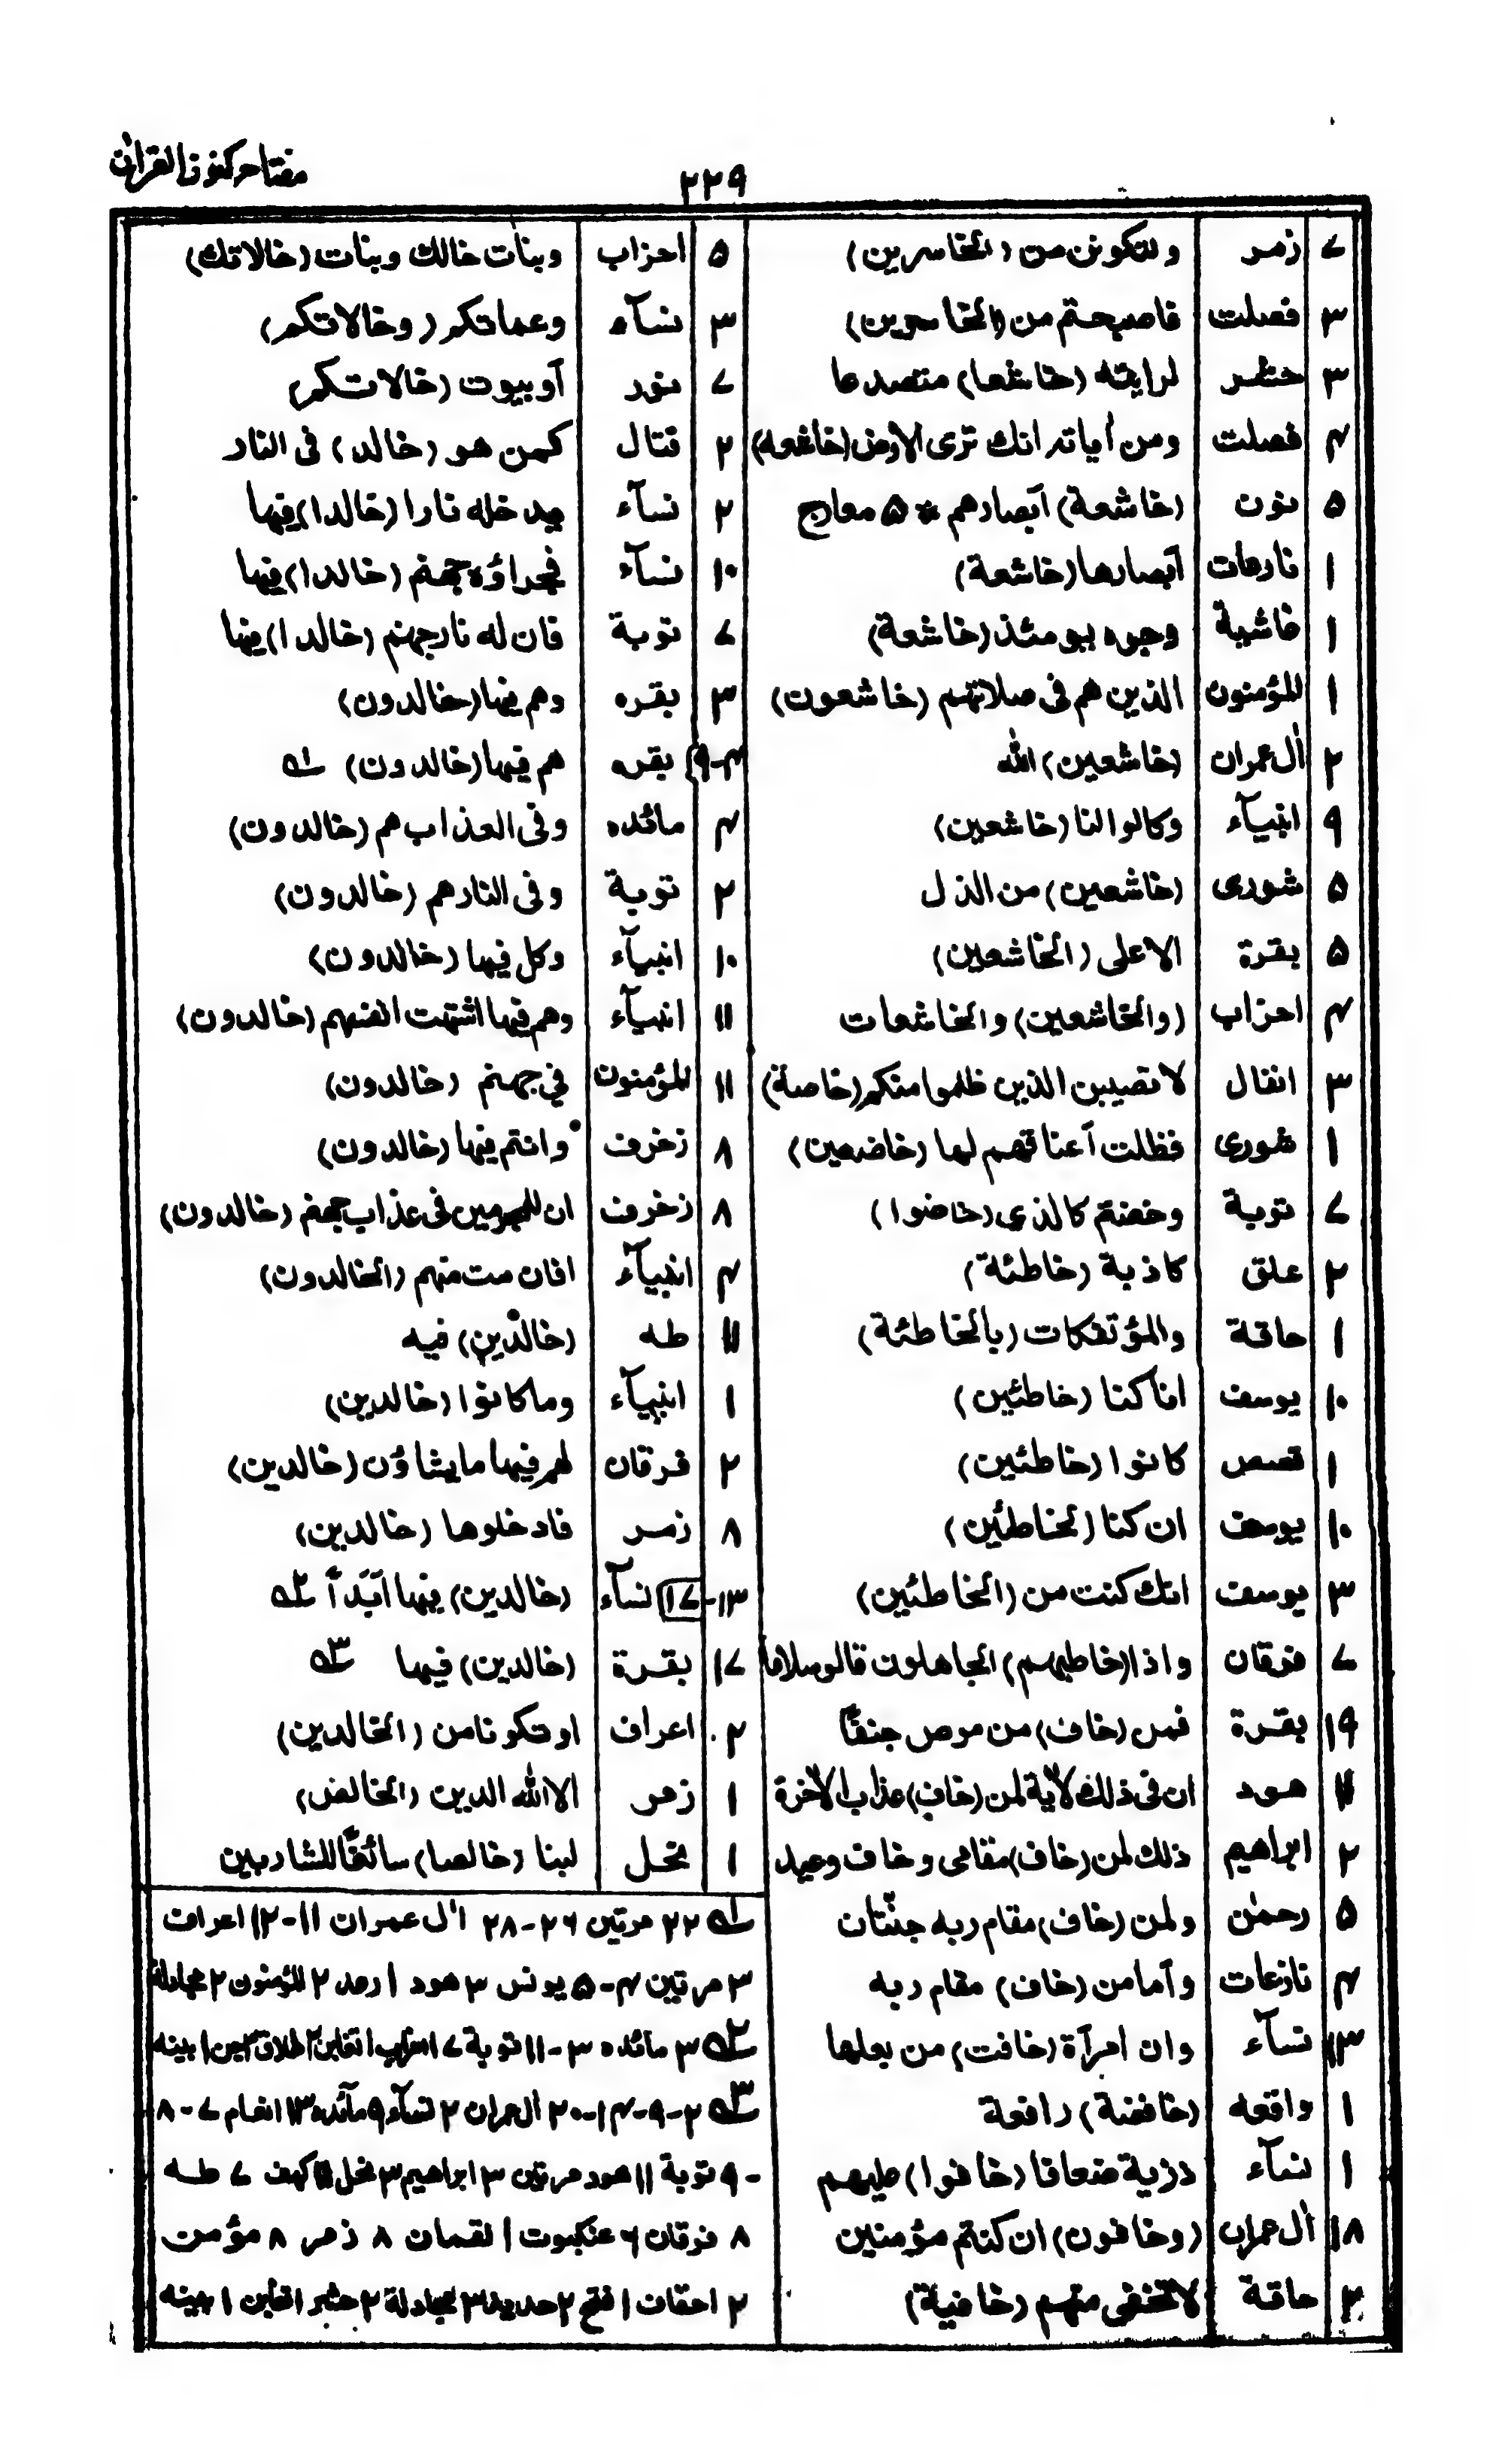 مفتاح کنوز القرآن
۲۲۹
۷ زمر ولتکونن من (الخاسرین)
۳ فصلت فاصبحتم من (الخاسرین)
۳ حشر لرایته (خاشعا) متصدعا
۴ فصلت ومن اٰیاته انك تری الارض (خاشعه)
۵ نون (خاشعة) اَبصارهم * ۵ معارج
۱ نازعات اَبصارها (خاشعة)
۱ غاشیة وجوه یومئذ (خاشعة)
۱ المؤمنون الذین هم فی صلاتهم (خاشعون)
۲ اٰل عمران (خاشعین) الله
۹ انبیآء وکانوا لنا (خاشعین)
۵ شوری (خاشعین) من الذل
۵ بقرة الا علی (الخاشعین)
۴ احزاب (والخاشعین) والخاشعات
۳ انفال لا تصیبن الذین ظلموا منکم (خاصة)
۱ شوری فظلت اَعناقهم لها (خاضعین)
۷ توبة وخضتم کالذی (خاضوا)
۲ علق کاذبة (خاطئة)
۱ حاقة والمؤتفکات (بالخاطئة)
۱۰ یوسف انا کنا (خاطئین)
۱ قصص کانوا (خاطئین)
۱۰ یوسف ان کنا (لخاطئین)
۳ یوسف انك کنت من (الخاطئین)
۷ فرقان واذا (خاطبهم) الجاهلون قالو سلاما
۱۹ بقرة فمن (خاف) من موص جنفًا
۱۱ هود ان فی ذلك لاٰیة لمن (خاف) عذاب الاٰخرة
۲ ابراهیم ذلك لمن (خاف) مقامی وخاف وعید
۵ رحمٰن ولمن (خاف) مقام ربه جنّتان
۴ نازعات واَما من (خاف) مقام ربه
۱۳ نسآء وان امرآة (خافت) من بعلها
۱ واقعه (خافضة) رافعة
۱ نسآء ذریة ضعافا (خافوا) علیهم
۱۸ اٰل عمران (وخافون) ان کنتم مؤمنین
۲ حاقة لا تخفی منهم (خافیة)
۵ احزاب وبنات خالك وبنات (خالاتك)
۳ نسآء وعماتکم (وخالاتکم)
۷ نور اَو بیوت (خالاتکم)
۲ قتال کمن هو (خالد) فی النار
۲ نسآء یدخله نارا (خالدا) فیها
۱۰ نسآء فجزاؤه جهنم (خالدا) فیها
۷ توبة فان له نار جهنم (خالدا) فیها
۳ بقره وهم فیها (خالدون)
۴-۹ بقره هم فیها (خالدون) ۱ه
۴ مائده وفی العذاب هم (خالدون)
۲ توبة وفی النار هم (خالدون)
۱۰ انبیآء وکل فیها (خالدون)
۱۱ انبیآء وهم فیما اشتهت انفسهم (خالدون)
۱۱ المؤمنون فی جهنم (خالدون)
۸ زخرف وانتم فیها (خالدون)
۸ زخرف ان المجرمین فی عذاب جهنم (خالدون)
۴ انبیآء افان مت منهم (الخالدون)
۱۱ طه (خالدین) فیه
۱ انبیآء وما کانوا (خالدین)
۲ فرقان لهم فیها ما یشاؤن (خالدین)
۸ زمر فادخلوها (خالدین)
۱۳-۱۷ نسآء (خالدین) فیها اَبَداً ۲ه
۱۷ بقرة (خالدین) فیها ۳ه
۲ اعراف او تکونا من (الخالدین)
۱ زمر الا لله الدین (الخالص)
۱ نحل لبنا (خالصا) سائغًا للشاربین
۱ه ۲۲ مرتین ۲۶-۲۸ اٰل عمران ۱۱-۱۲ اعراف
۳ مرتین ۴-۵ یونس ۳ هود ۱ رعد ۲ المؤمنون ۲ مجادلة
۲ه ۳ مائده ۳-۱۱ توبة ۷ احزاب ۱ تغابن ۲ طلاق ۲ جن ۱ بینه
۳ه ۲-۹-۱۴-۲۰ اٰل عمران ۲ نسآء ۹ مآئده ۱۳ انعام ۷-۸
-۹ توبة ۱۱ هود مرتین ۳ ابراهیم ۳ نحل ۱۱ کهف ۷ طه
۸ فرقان ۶ عنکبوت ۱ لقمان ۸ زمر ۸ مؤمن
۲ احقاف ۱ فتح ۲ حدید ۳ مجادلة ۲ حشر ۱ تغابن ۱ بینه